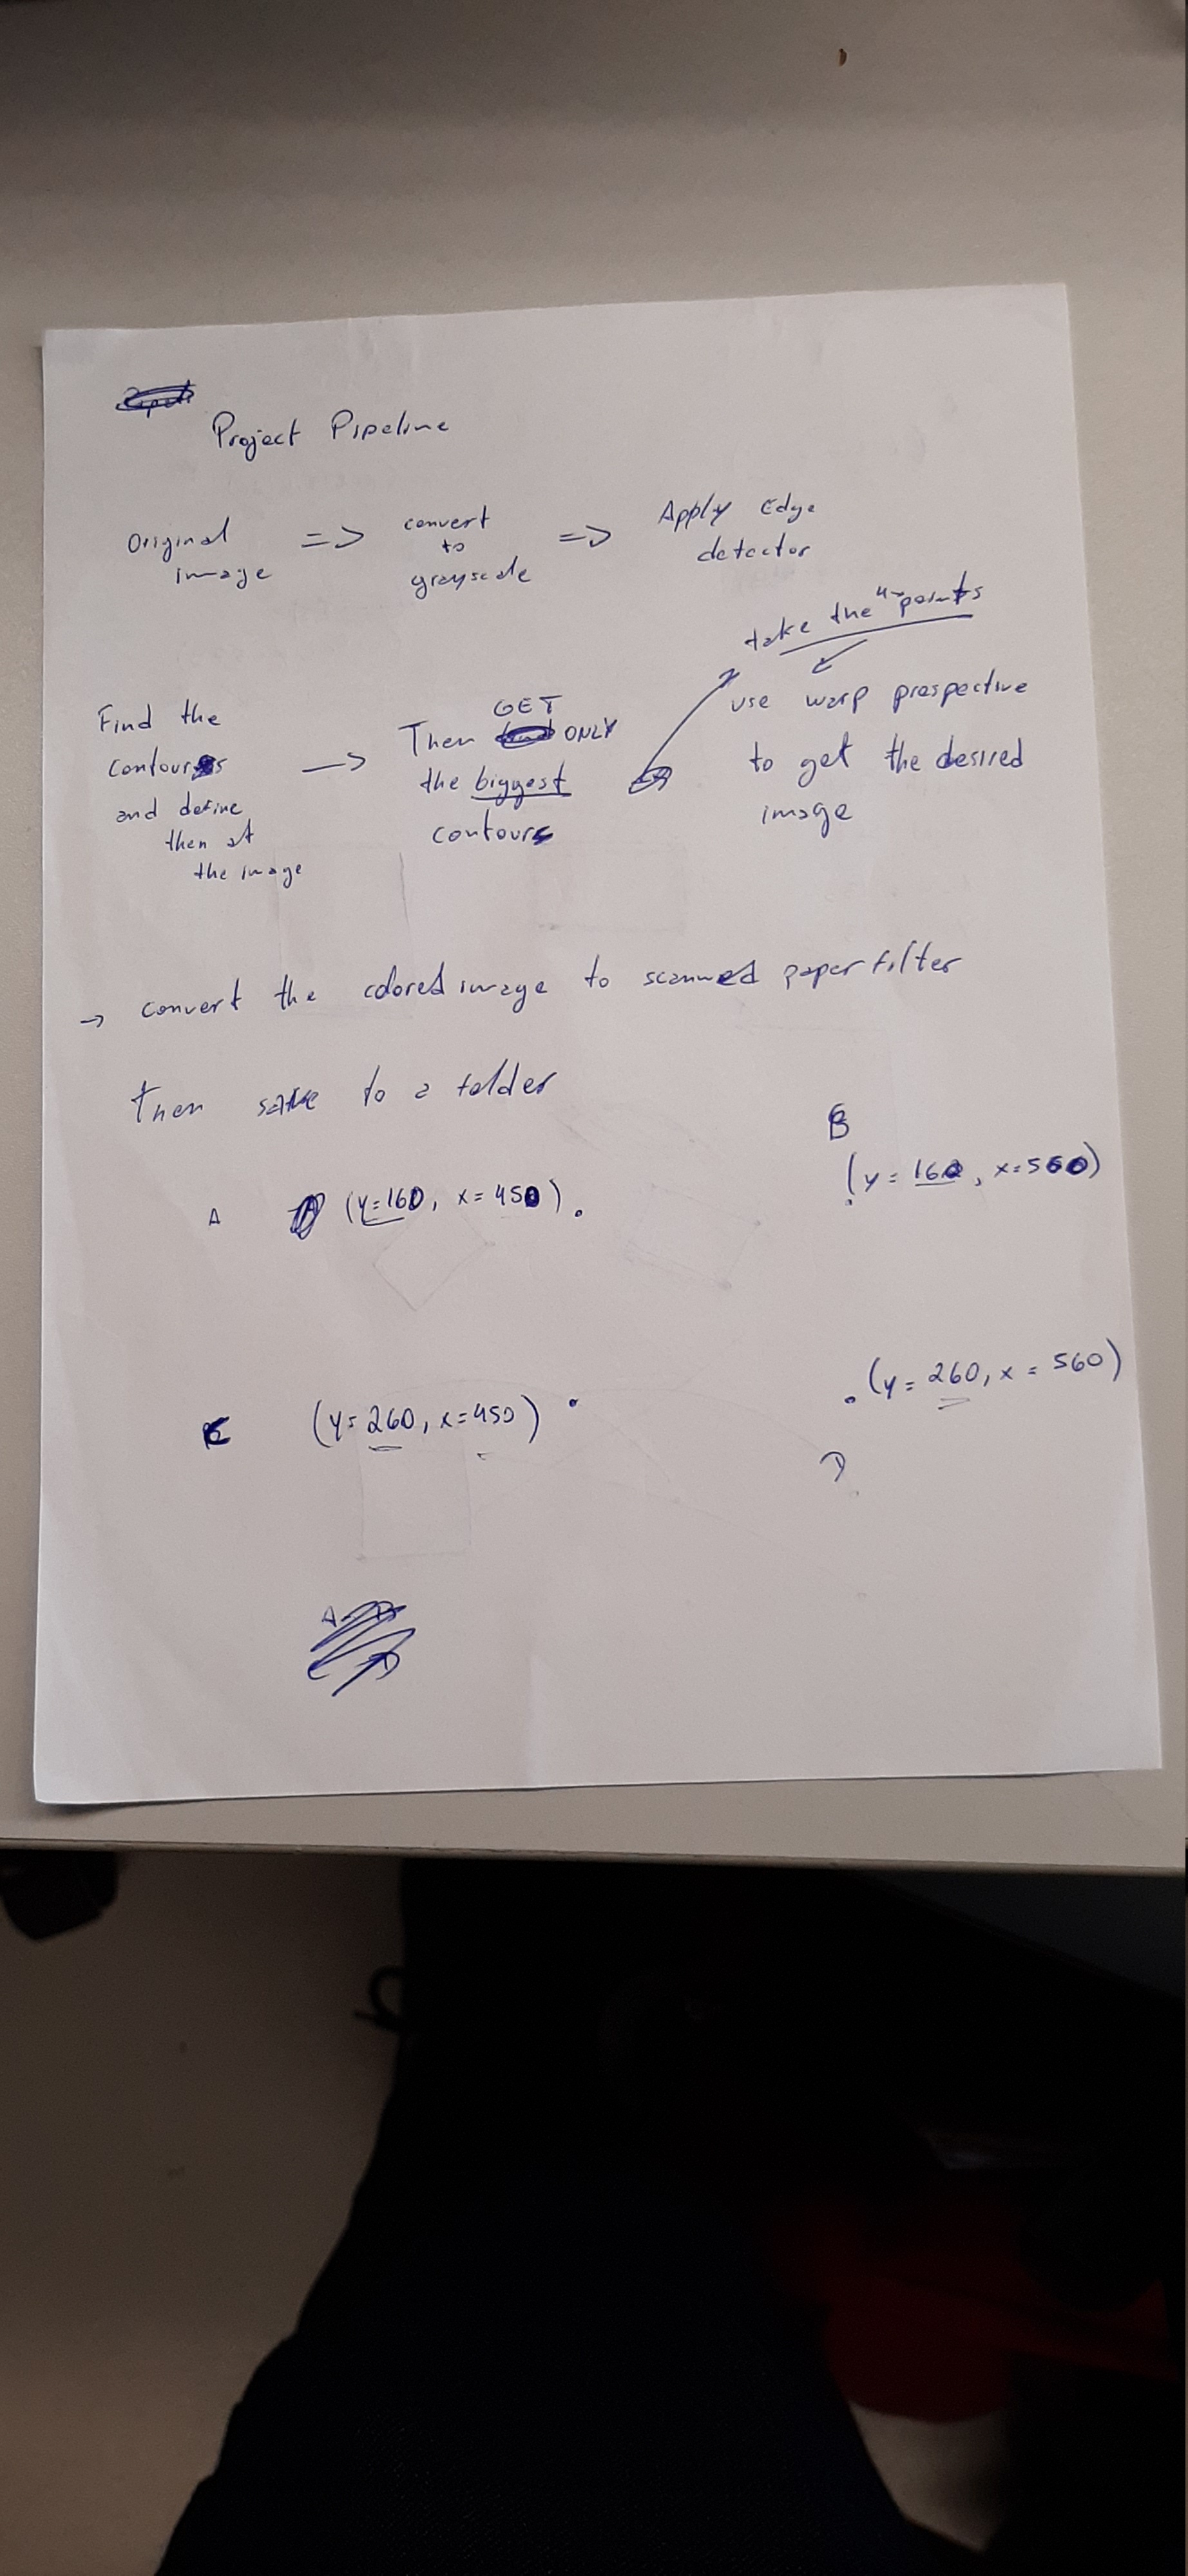 Project Pipeline
Original image => convert to grayscale => Apply Edge detector
take the 4 points
Find the contours and define them at the image -> Then GET ONLY the biggest contours
use warp prespective to get the desired image
-> convert the colored image to scanned paper filter
then save to a folder
B
A (y=160, x=450) . (y = 160, x=560)
C (y=260, x=450) . (y = 260, x = 560)